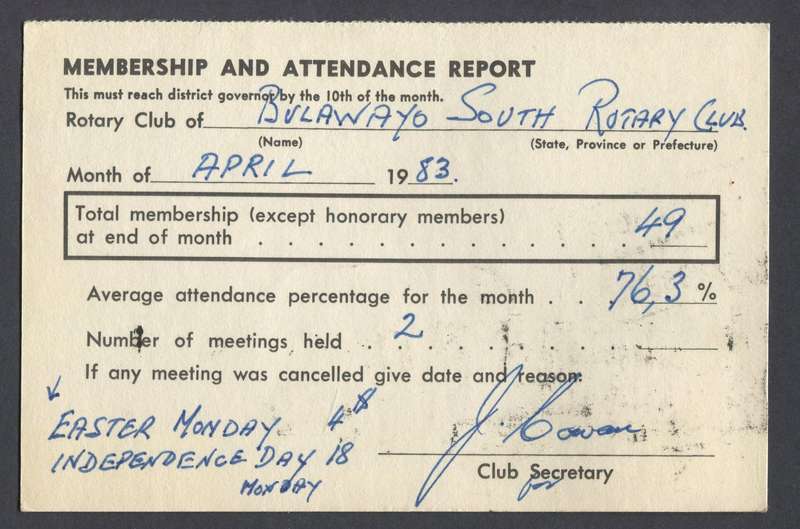 MEMBERSHIP AND ATTENDANCE REPORT
This must reach district governor by the 10th of the month.
Rotary Club of BULAWAYO SOUTH ROTARY CLUB.
(Name) (State, Province or Prefecture)
Month of APRIL 1983.
Total membership (except honorary members)
at end of month . . . . . . . . . . . . . 49
Average attendance percentage for the month . . 76,3 %
Number of meetings held . 2 . . . . . . . .
If any meeting was cancelled give date and reason:
EASTER MONDAY 4th
INDEPENDENCE DAY 18
MONDAY
J. Cowan
Club Secretary
for